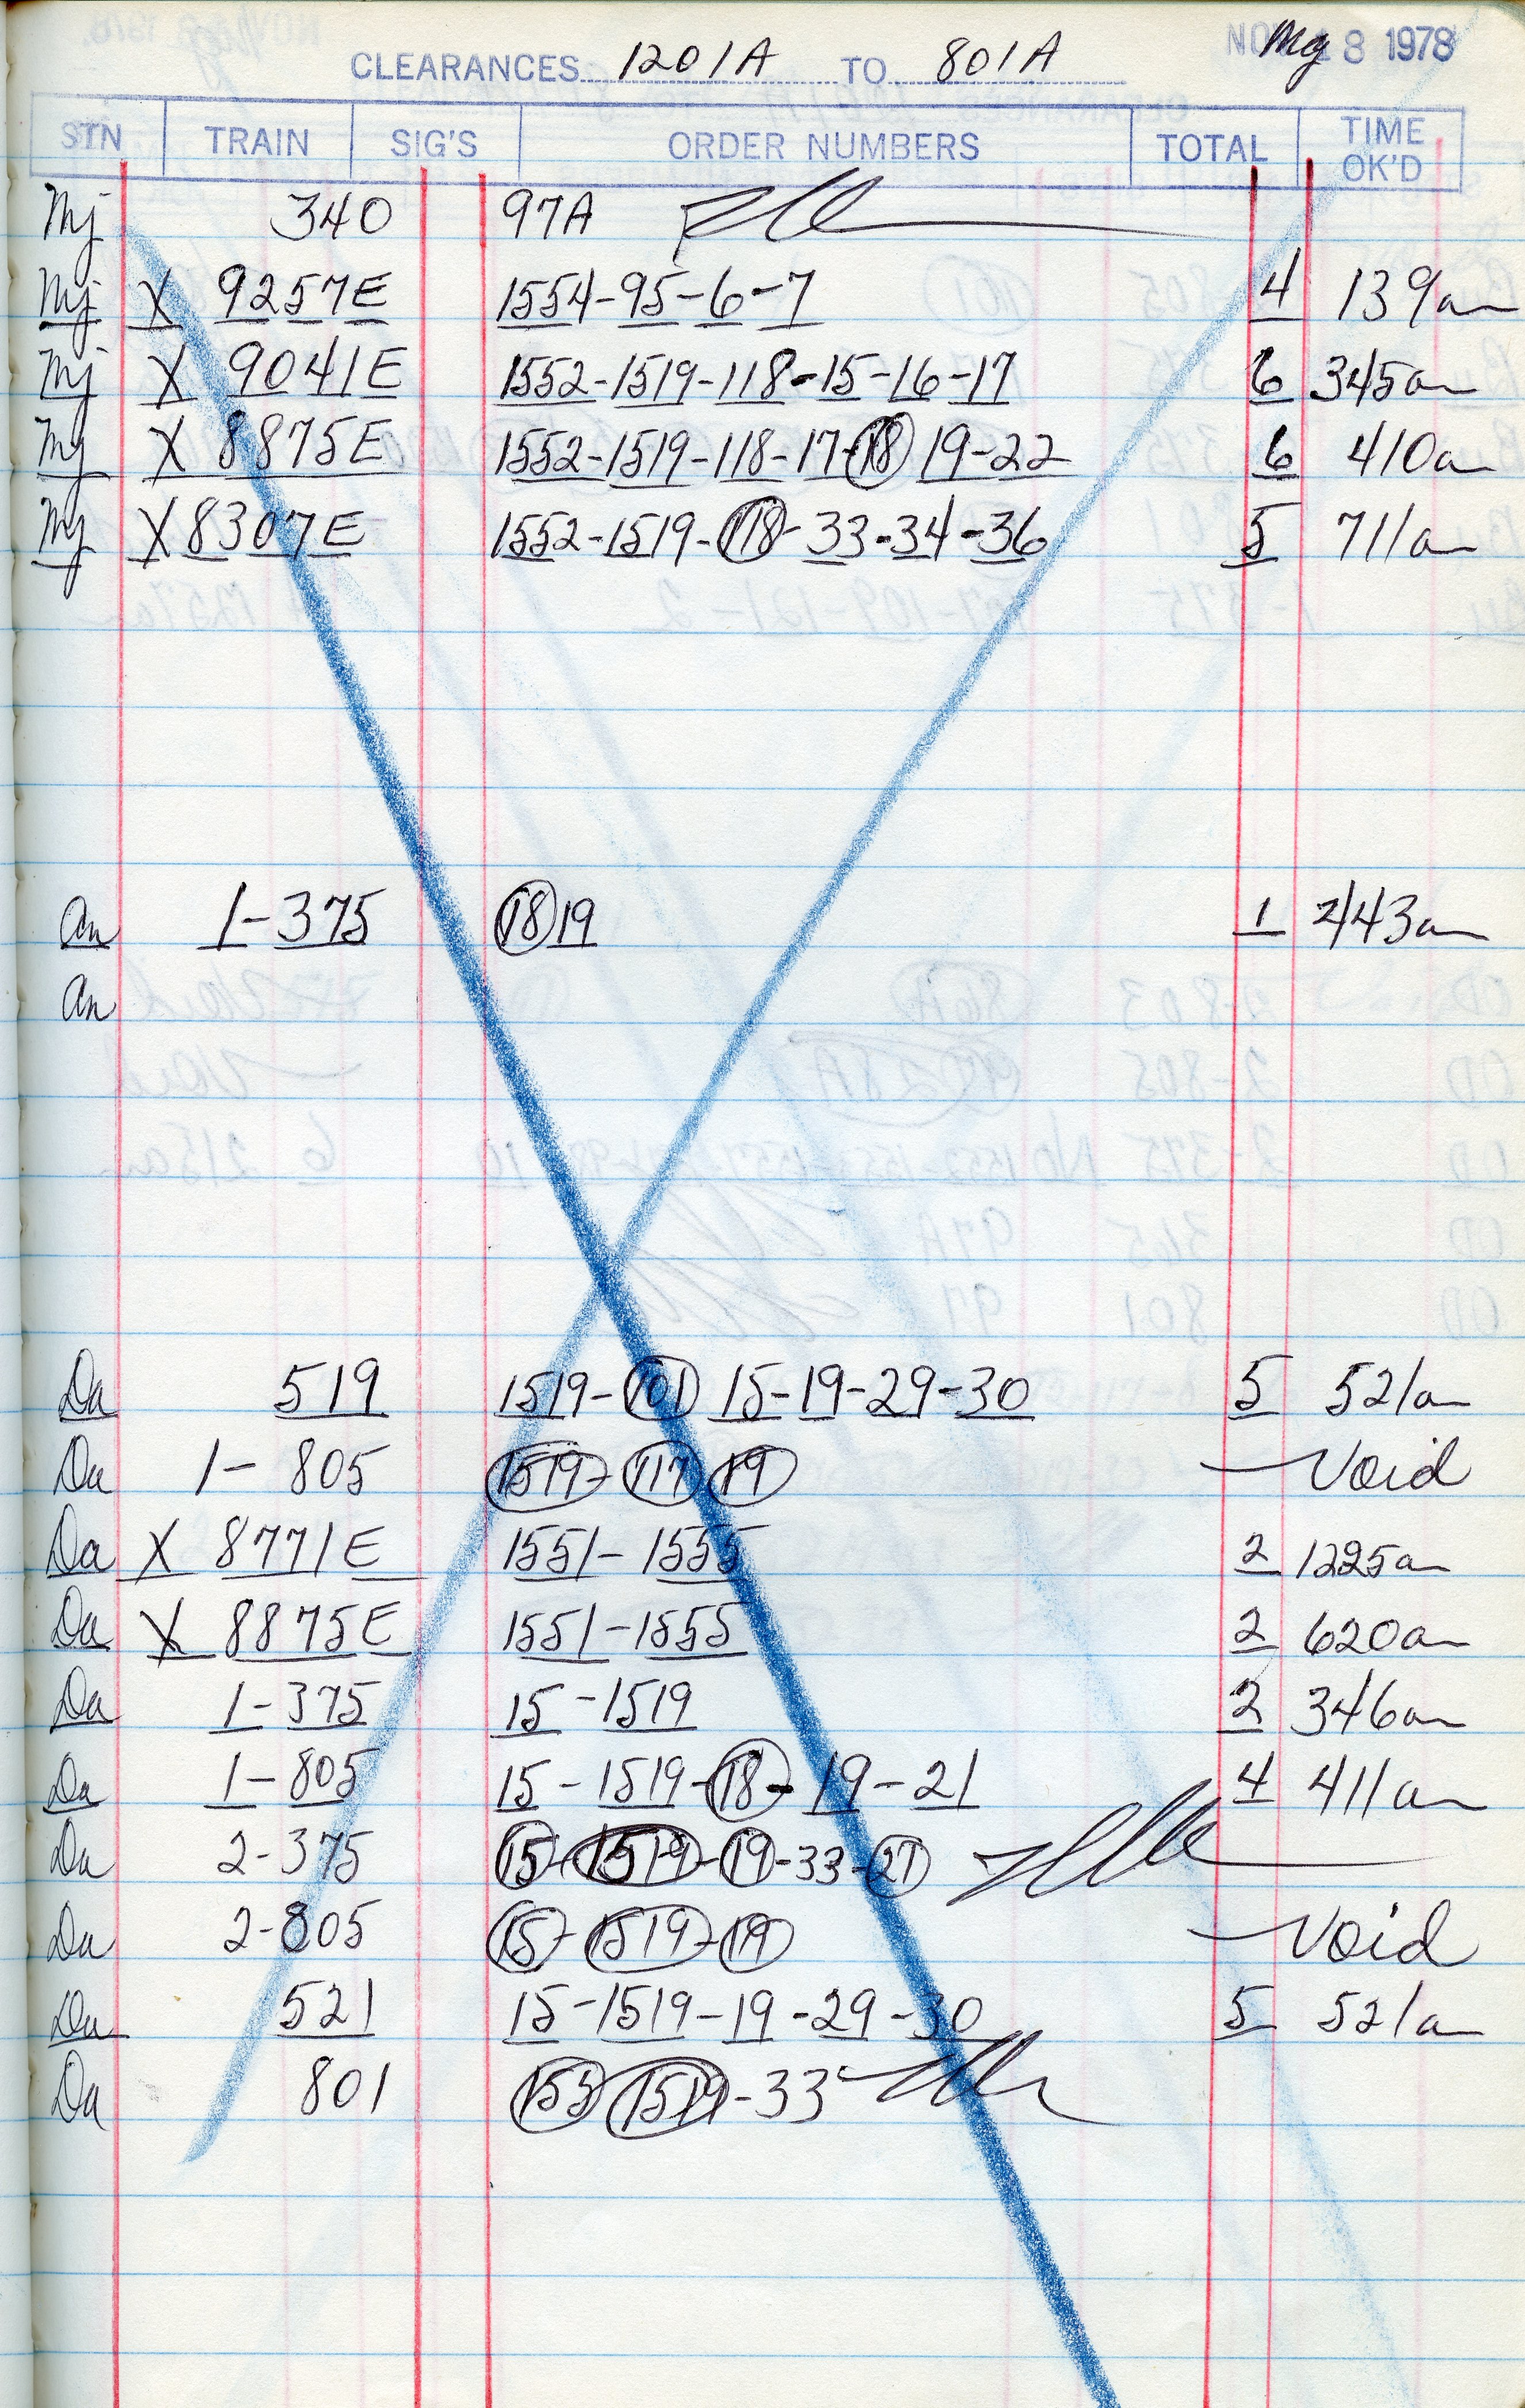 NOV 28 1978
CLEARANCES 1201A TO 801A
STN TRAIN SIG'S ORDER NUMBERS TOTAL TIME OK'D
Mj 340 97A
Mj X 9257E 1554-95-6-7 4 139am
Mj X 9041E 1552-1519-118-15-16-17 6 345am
Mj X 8875E 1552-1519-118-17-18 19-22 6 410am
Mj X 8307E 1552-1519-118-33-34-36 5 711am
An 1-375 18 19 1 243am
An
Da 519 1519-101 15-19-29-30 5 521am
Da 1-805 1519-117 19 Void
Da X 8771E 1551-1555 2 1225am
Da X 8875E 1551-1555 2 620am
Da 1-375 15-1519 2 346am
Da 1-805 15-1519-18-19-21 4 411am
Da 2-375 15-1519-19-33-21
Da 2-805 15-1519-19 Void
Da 521 15-1519-19-29-30 5 521am
Da 801 155 1519-33